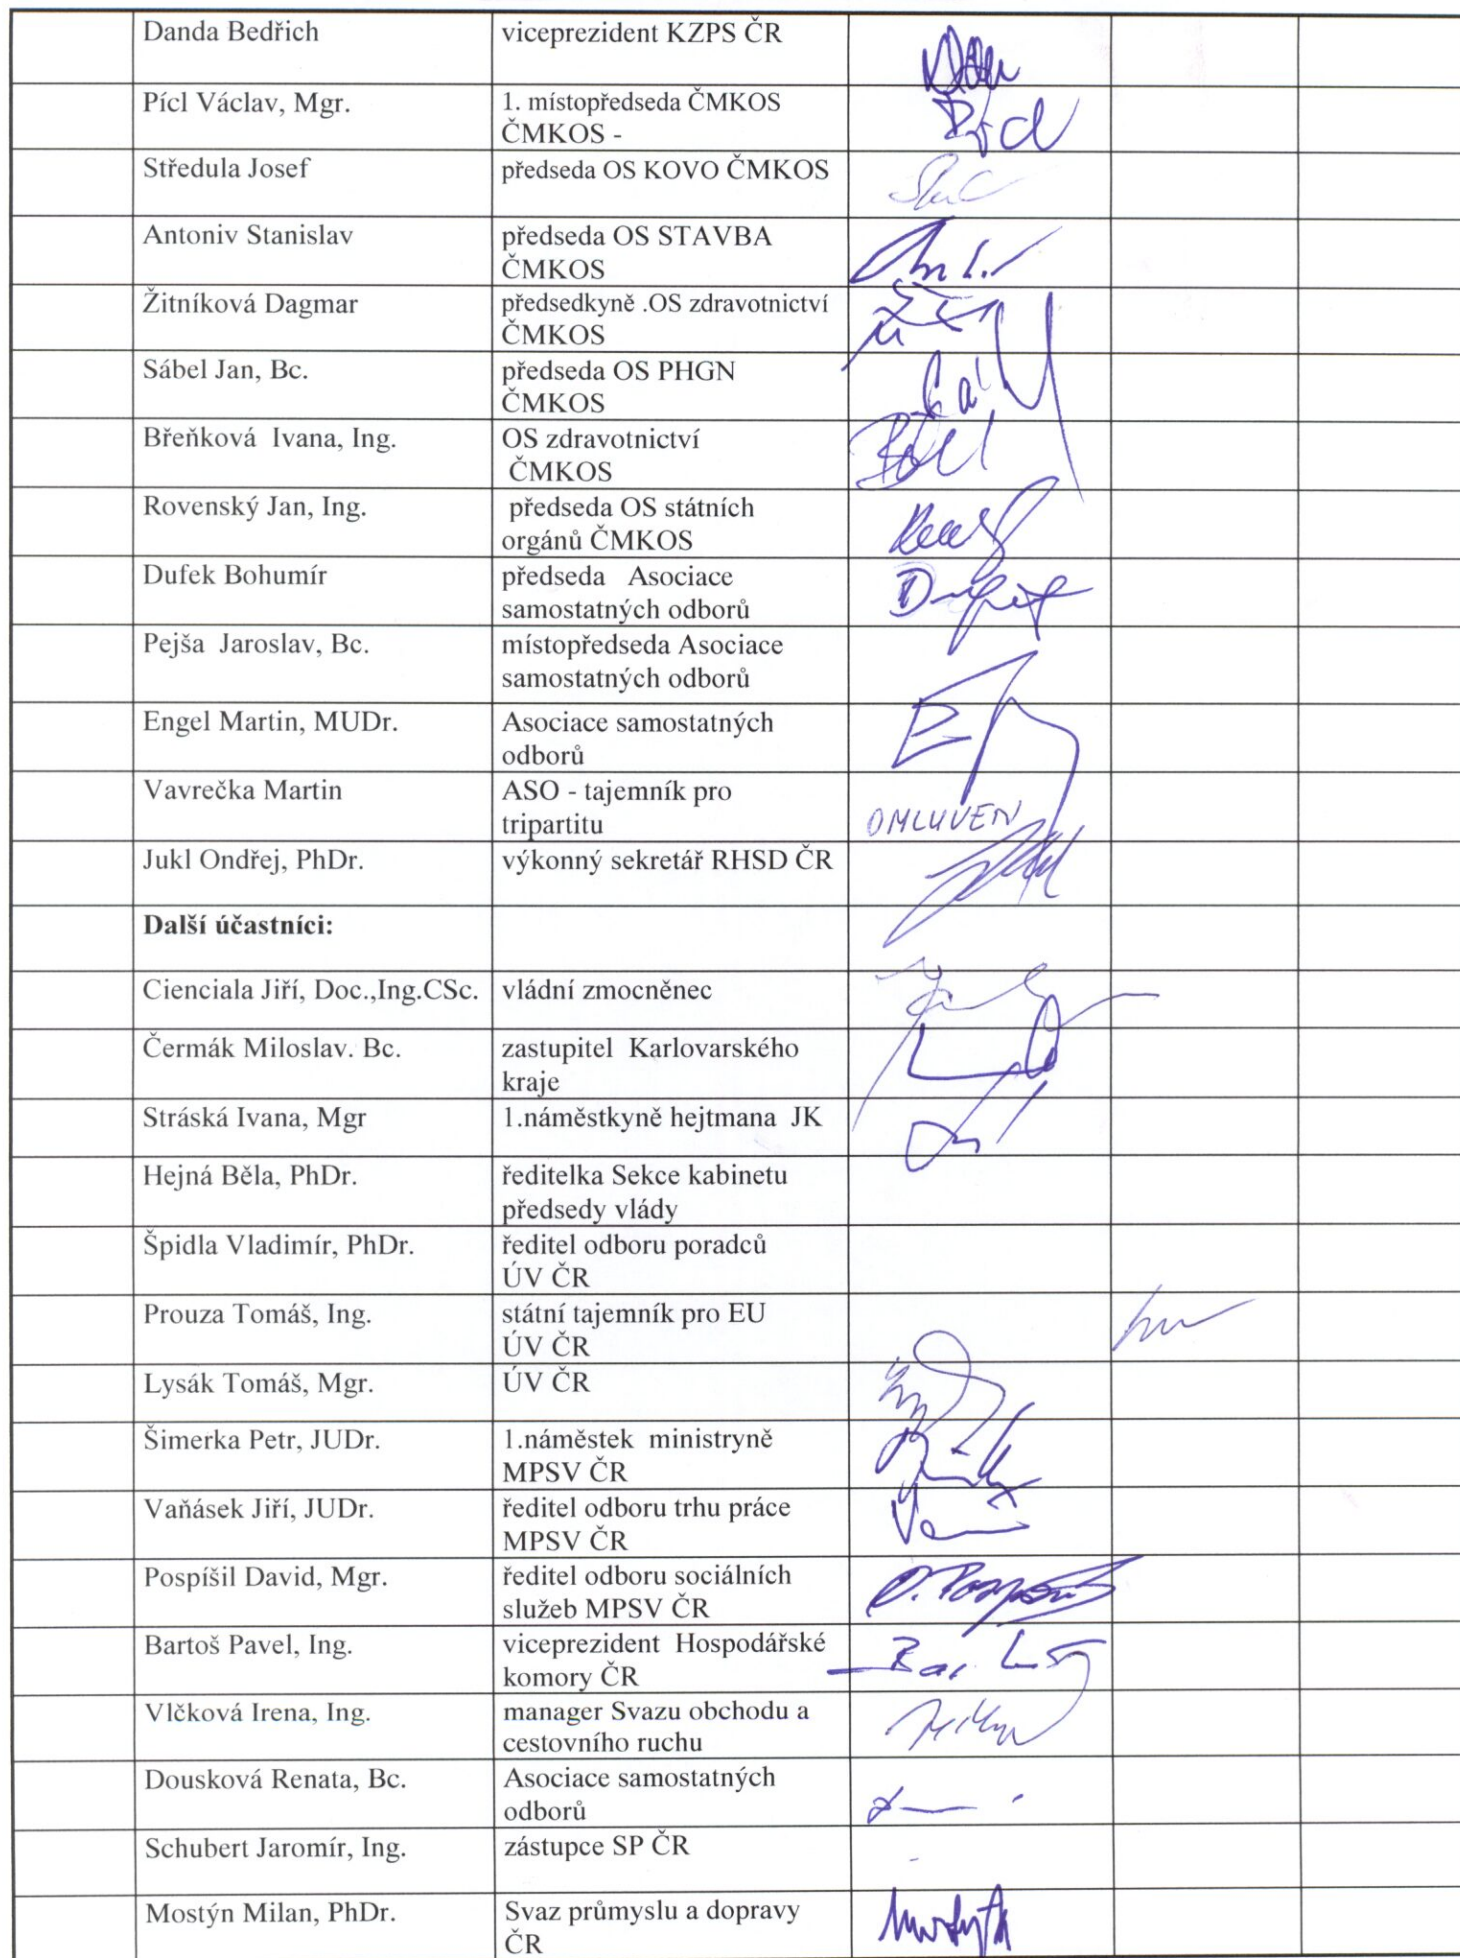 Danda Bedřich
viceprezident KZPS ČR
Pícl Václav, Mgr.
1. místopředseda ČMKOS
ČMKOS -
Středula Josef
předseda OS KOVO ČMKOS
Antoniv Stanislav
předseda OS STAVBA
ČMKOS
Žitníková Dagmar
předsedkyně .OS zdravotnictví
ČMKOS
Sábel Jan, Bc.
předseda OS PHGN
ČMKOS
Břeňková Ivana, Ing.
OS zdravotnictví
ČMKOS
Rovenský Jan, Ing.
předseda OS státních
orgánů ČMKOS
Dufek Bohumír
předseda Asociace
samostatných odborů
Pejša Jaroslav, Bc.
místopředseda Asociace
samostatných odborů
Engel Martin, MUDr.
Asociace samostatných
odborů
Vavrečka Martin
ASO - tajemník pro
tripartitu
OMLUVEN
Jukl Ondřej, PhDr.
výkonný sekretář RHSD ČR
Další účastníci:
Cienciala Jiří, Doc.,Ing.CSc.
vládní zmocněnec
Čermák Miloslav. Bc.
zastupitel Karlovarského
kraje
Stráská Ivana, Mgr
1.náměstkyně hejtmana JK
Hejná Běla, PhDr.
ředitelka Sekce kabinetu
předsedy vlády
Špidla Vladimír, PhDr.
ředitel odboru poradců
ÚV ČR
Prouza Tomáš, Ing.
státní tajemník pro EU
ÚV ČR
Lysák Tomáš, Mgr.
ÚV ČR
Šimerka Petr, JUDr.
1.náměstek ministryně
MPSV ČR
Vaňásek Jiří, JUDr.
ředitel odboru trhu práce
MPSV ČR
Pospíšil David, Mgr.
ředitel odboru sociálních
služeb MPSV ČR
Bartoš Pavel, Ing.
viceprezident Hospodářské
komory ČR
Vlčková Irena, Ing.
manager Svazu obchodu a
cestovního ruchu
Dousková Renata, Bc.
Asociace samostatných
odborů
Schubert Jaromír, Ing.
zástupce SP ČR
Mostýn Milan, PhDr.
Svaz průmyslu a dopravy
ČR